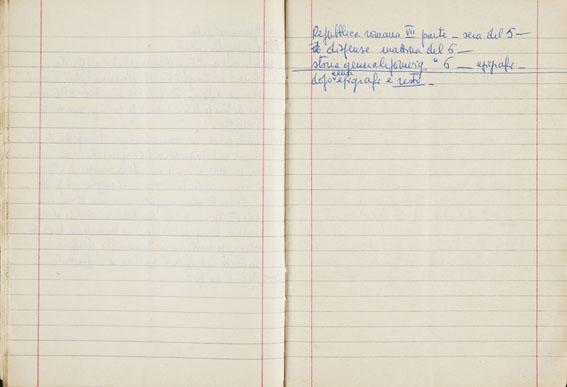 Repubblica romana VII parte – sera del 5 –
dispense mattina del 6 –
storia general pomerig. " 6 — epigrafi –
dopo cena epigrafi e resto –